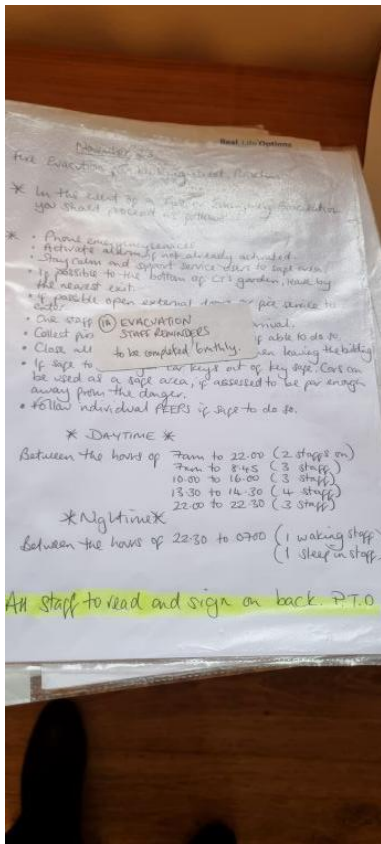 Real Life Options
November
Fire Evacuation
* In the event of a fire or emergency evacuation
you shall proceed as follows
* • Phone emergency services
• Activate alarm if not already activated.
• Stay calm and support service users to safe area
If possible to the bottom of garden, leave by
the nearest exit.
• If possible open external doors for fire service to
enter.
• One staff
(1A) EVACUATION
STAFF REMINDERS
to be completed 6mthly.
arrival.
• Collect if able to do so.
• Close all when leaving the building
• If safe to car keys out of key safe. Cars can
be used as a safe area, if assessed to be far enough
away from the danger.
• Follow individual PEEPs if safe to do so.
* DAYTIME *
Between the hours of 7am to 22.00 (2 staffs on)
7am to 8.45 (3 staff)
10.00 to 16.00 (3 staff)
13.30 to 14.30 (4 staff)
22.00 to 22.30 (3 staff)
* Nightime *
Between the hours of 22.30 to 0700 (1 waking staff
(1 sleep in staff
All staff to read and sign on back. P.T.O